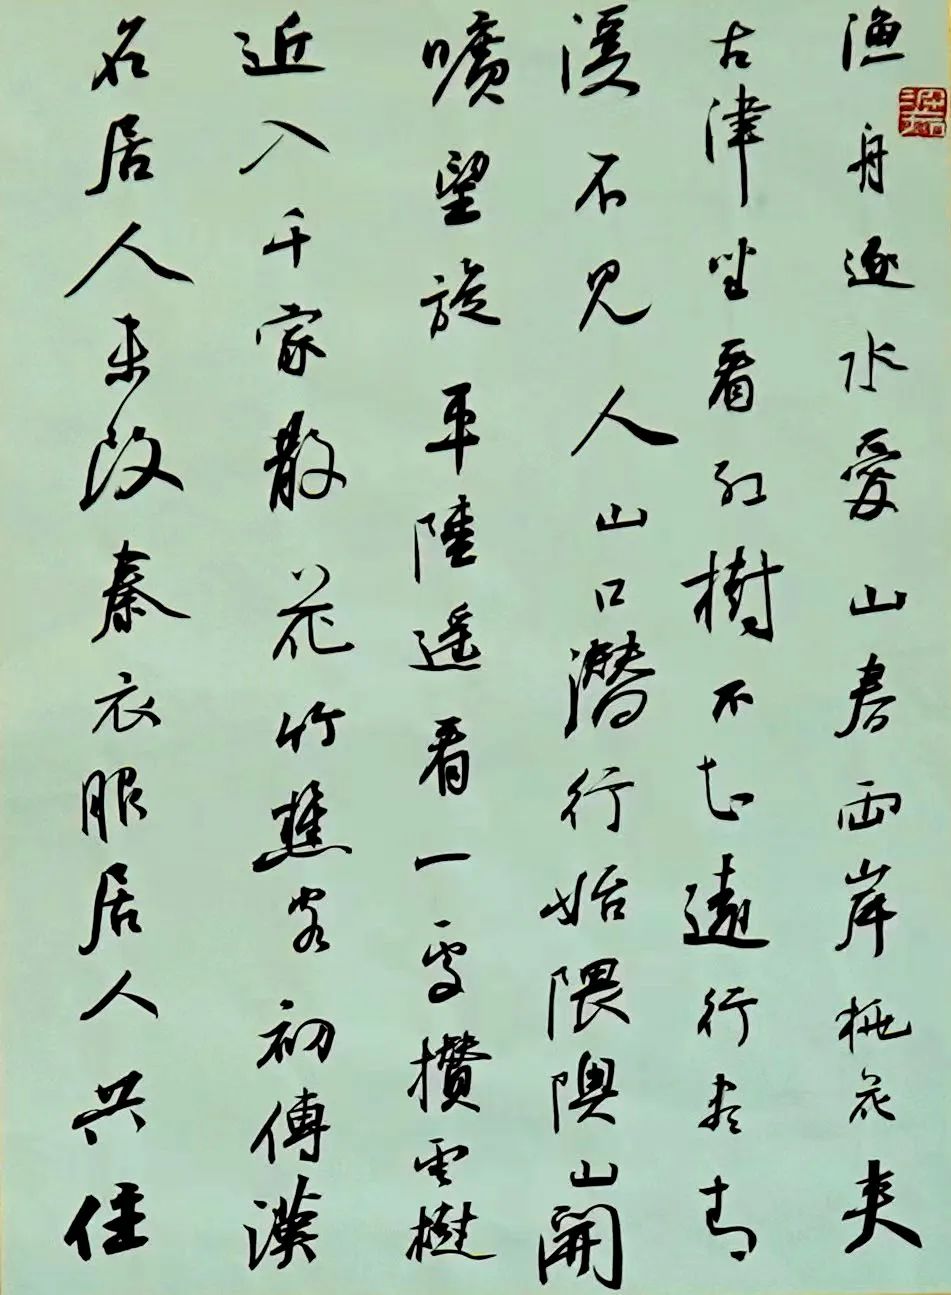 漁舟逐水愛山春兩岸桃花夾
古津坐看紅樹不知遠行盡青
溪不見人山口潛行始隈隩山開
曠望旋平陸遙看一處攢雲樹
近入千家散花竹樵客初傳漢
名居人未改秦衣服居人共住